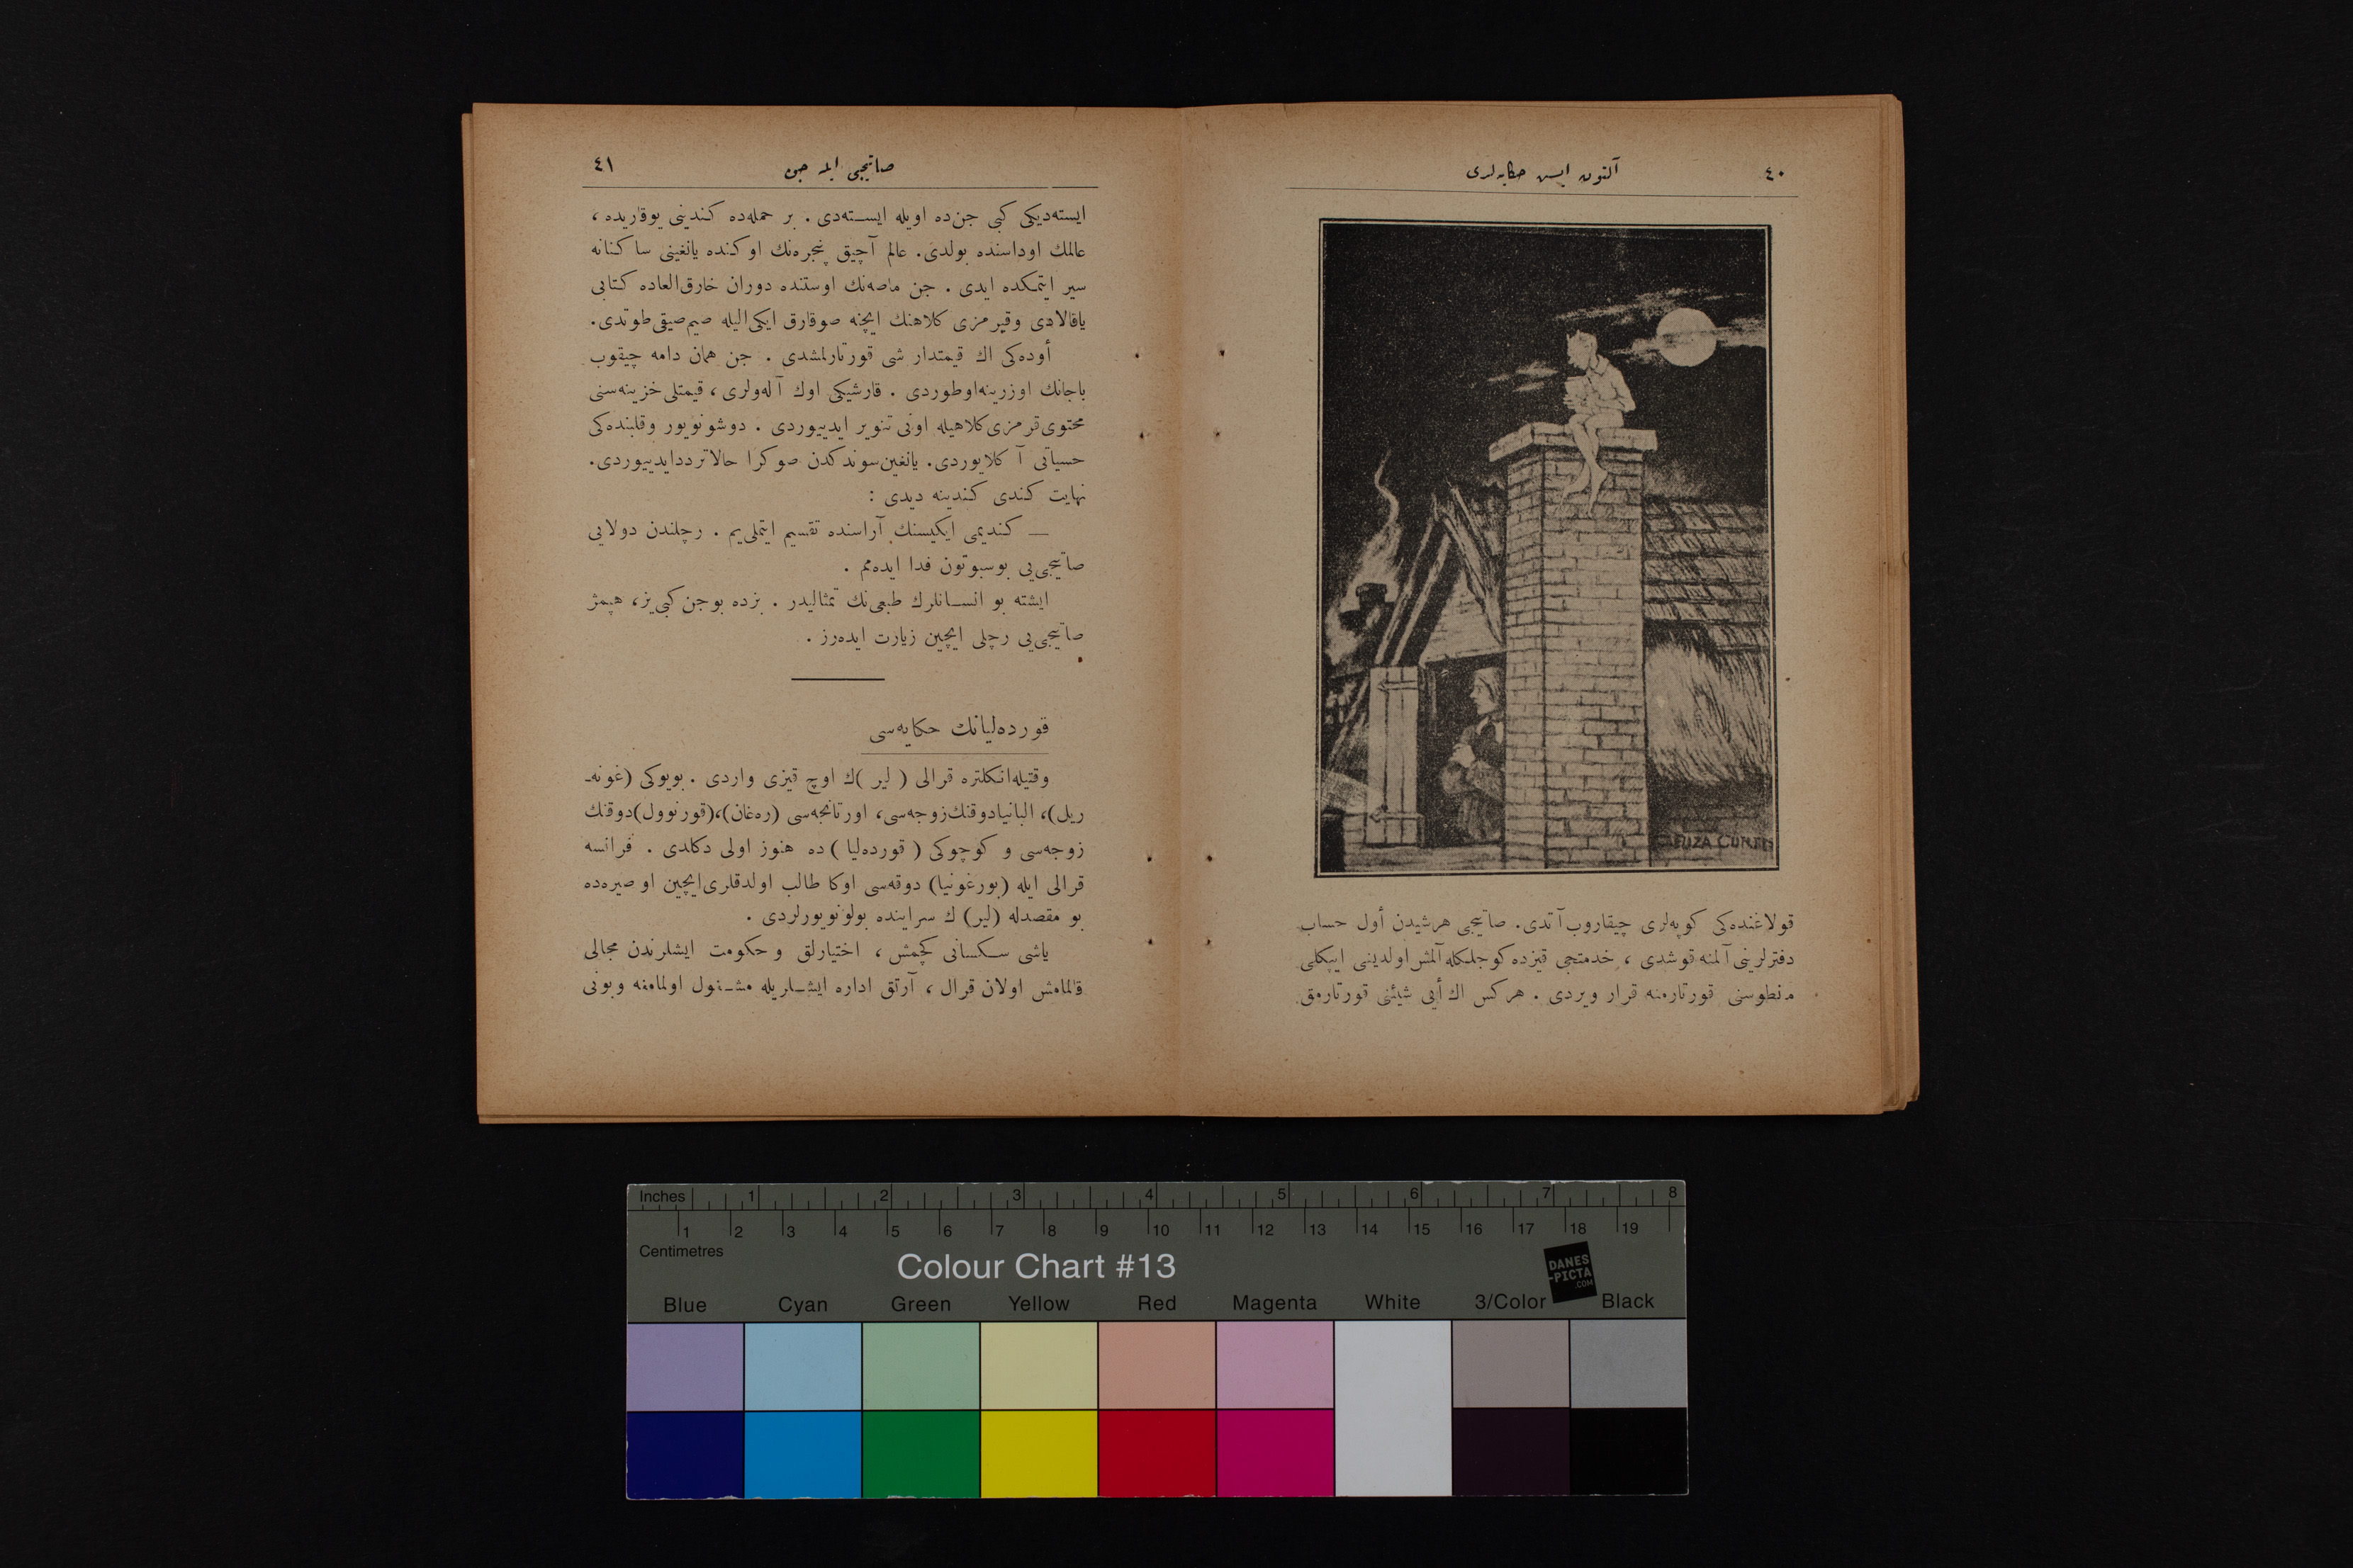 ٤٠
آلتون ایپ حکایه‌لری
CUNEIS
قولاغنده‌کی کوپه‌لری چیقاروب آتدی. صاتیجی هرشیدن أول حساب
دفترلرینی آلمنه قوشدی ، خدمتجی قیزده کوجلکله آلمش اولدینی ایپکلی
منطوسنی قورتارمنه قرار ویردی . هرکس اك أیی شیئنی قورتارمق
٤١
صاتیجی ایله جن
ایسته‌دیکی کبی جن‌ده اویله ایسته‌دی . بر حمله‌ده کندینی یوقاریده ،
عالمك اوداسنده بولدی. عالم آچیق پنجره‌نك اوکنده یانغینی ساکنانه
سیر ایتمکده ایدی . جن ماصه‌نك اوستنده دوران خارق‌العاده کتابی
یاقالادی وقیرمزی کلاهنك ایچنه صوقارق ایکی الیله صیم صیقی طوتدی.
أوده‌کی اك قیمتدار شی قورتارلمشدی . جن همان دامه چیقوب
باجانك اوزرینه اوطوردی . قارشیکی اوك آله‌ولری ، قیمتلی خزینه‌سنی
محتوی قرمزی کلاهیله اونی تنویر ایدییوردی . دوشونویور وقلبنده‌کی
حسیاتی آ کلایوردی. یانغین سوندکدن صوکرا حالا تردد ایدییوردی.
نهایت کندی کندینه دیدی :
— کندیمی ایکیسنك آراسنده تقسیم ایتملی‌یم . رچلندن دولایی
صاتیجی‌یی بوسبوتون فدا ایده‌مم .
ایشته بو انسانلرك طبعی‌نك تمثالیدر . بزده بو جن کبی‌یز، هپمز
صاتیجی‌یی رچلی ایچین زیارت ایده‌رز .
قورده‌لیانك حکایه‌سی
وقتیله انکلتره قرالی ( لیر )ك اوچ قیزی واردی . بویوکی (غونه‌ـ
ریل)، البانیا دوقنك زوجه‌سی، اورتانجه‌سی (ره‌غان)،(قورنوول)دوقنك
زوجه‌سی و کوچوکی ( قورده‌لیا ) ده هنوز اولی دکلدی . فرانسه
قرالی ایله (بورغونیا) دوقه‌سی اوکا طالب اولدقلری ایچین او صیره‌ده
بو مقصدله (لیر) ك سراینده بولونویورلردی .
یاشی سکسانی کچمش ، اختیارلق و حکومت ایشلرندن مجالی
قالمامش اولان قرال ، آرتق اداره ایشلریله مشغول اولمامغه وبونی
Inches 1 2 3 4 5 6 7 8
1 2 3 4 5 6 7 8 9 10 11 12 13 14 15 16 17 18 19
Centimetres
Colour Chart #13
DANES
-PICTA
.COM
Blue Cyan Green Yellow Red Magenta White 3/Color Black